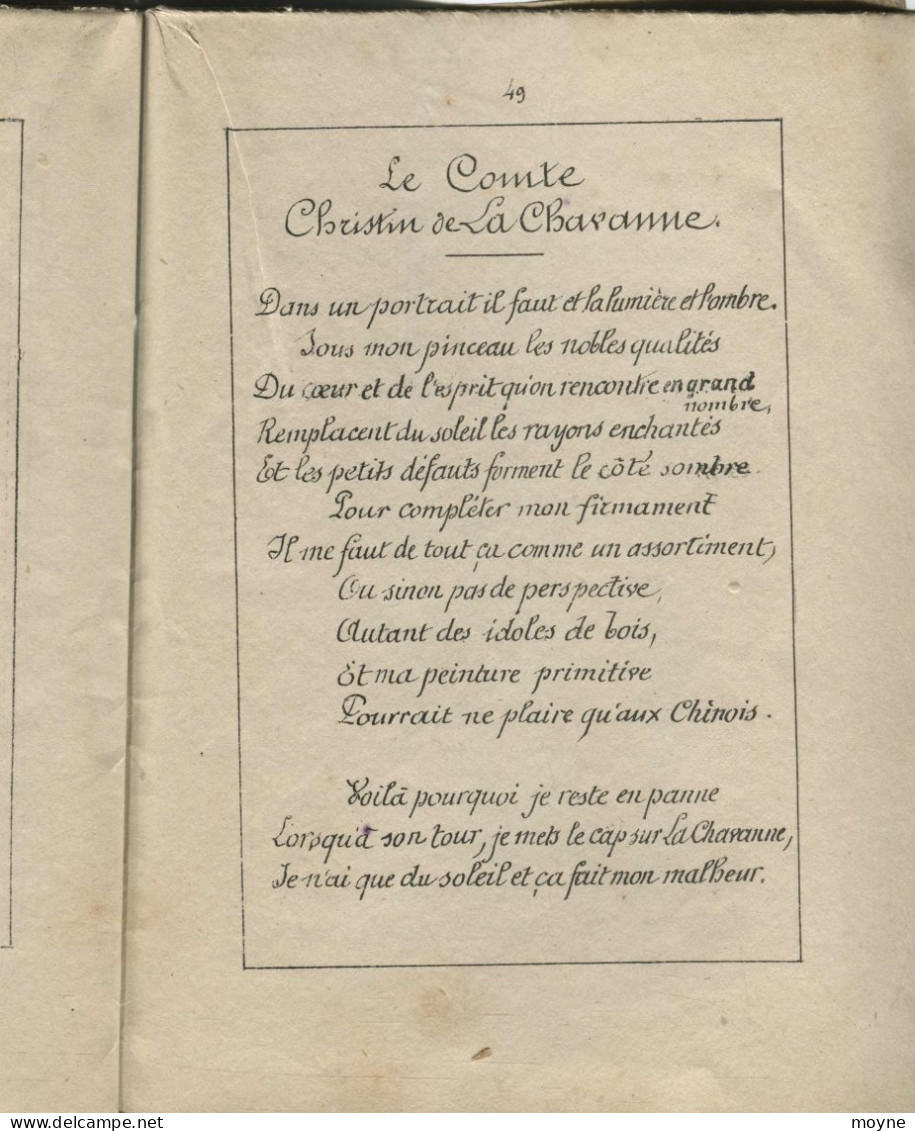 49
Le Comte
Christin de La Chavanne.
Dans un portrait il faut et la lumière et l'ombre.
Sous mon pinceau les nobles qualités
Du cœur et de l'esprit qu'on rencontre en grand
nombre,
Remplacent du soleil les rayons enchantés
Et les petits défauts forment le côté sombre.
Pour compléter mon firmament
Il me faut de tout ça comme un assortiment,
Ou sinon pas de perspective,
Autant des idoles de bois,
Et ma peinture primitive
Pourrait ne plaire qu'aux Chinois.
Voilà pourquoi je reste en panne
Lorsqu'à son tour, je mets le cap sur La Chavanne,
Je n'ai que du soleil et ça fait mon malheur.
moyne